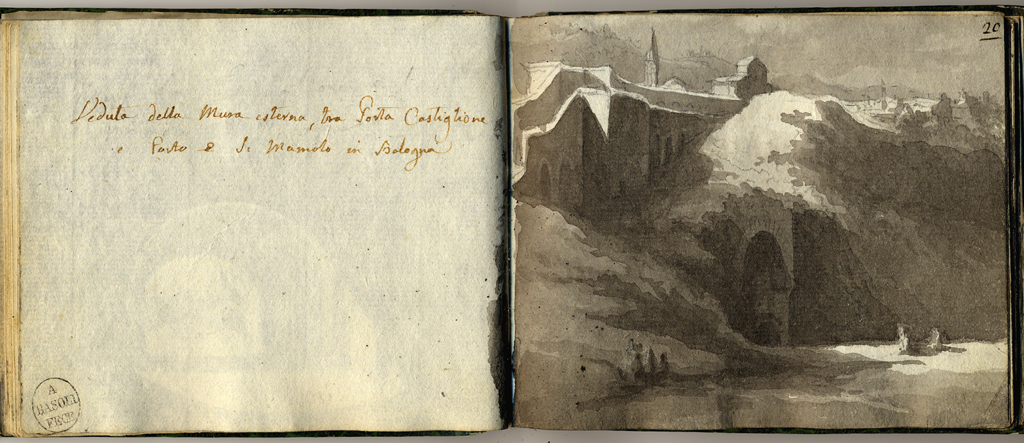 Veduta della Mura esterna, tra Porta Castiglione
e Porta S. Mamolo in Bologna
A
BASOLI
FECE
20